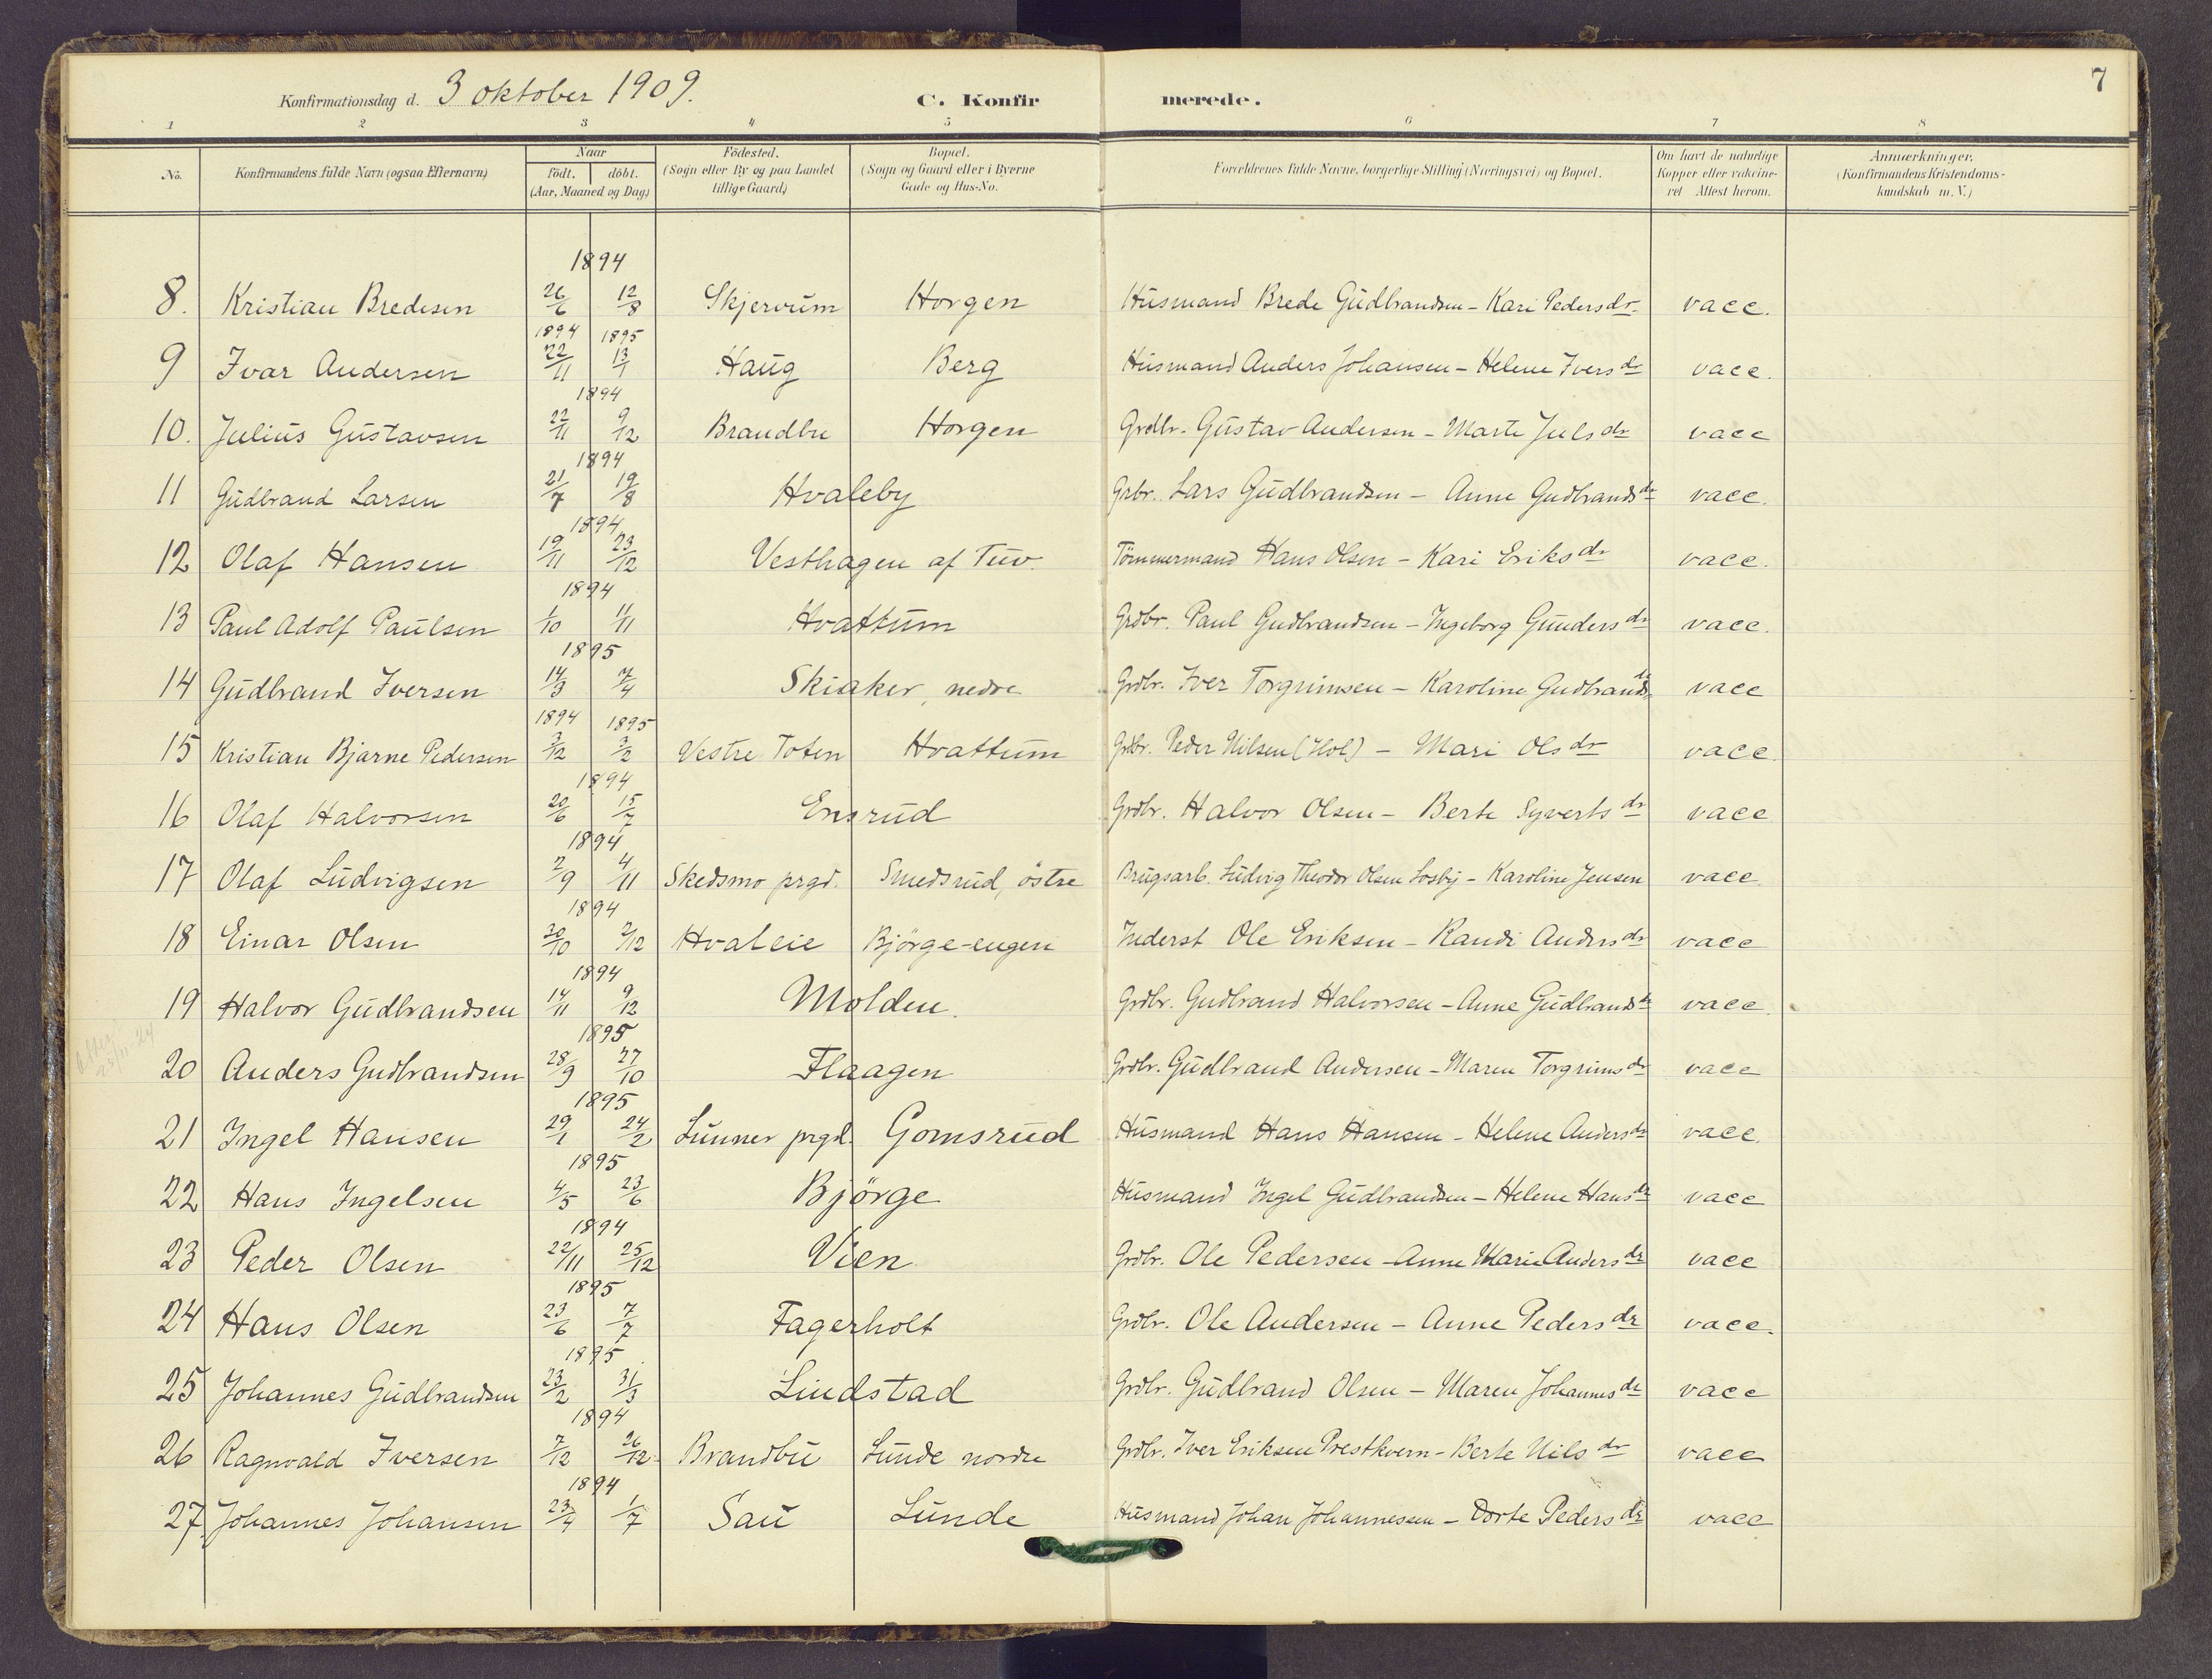 7
Konfirmationsdag d. 3 oktober 1909. C. Konfirmerede.
1 2 3 4 5 6 7 8
No. Konfirmandens fulde Navn (ogsaa Efternavn) Naar födt. döbt. (Aar, Maaned og Dag) Födested. (Sogn eller By og paa Landet tillige Gaard) Bopæl. (Sogn og Gaard eller i Byerne Gade og Hus-No. Forældrenes fulde Navne, borgerlige Stilling (Næringsvei) og Bopæl. Om havt de naturlige Kopper eller vakcineret Attest herom. Anmærkninger. (Konfirmandens Kristendomskundskab m. V.)
1894
8. Kristian Bredesen 26/6 12/8 Skjervum Horgen Husmand Brede Gudbrandsen - Kari Pedersdr. vacc.
1894 1895
9 Ivar Andersen 22/11 13/1 Haug Berg Husmand Anders Johansen - Helene Iversdr vacc.
1894
10. Julius Gustavsen 22/11 9/12 Brandbu Horgen Grdbr. Gustav Andersen - Marte Julsdr vacc
1894
11 Gudbrand Larsen 21/7 19/8 Hvaleby Grbr. Lars Gudbrandsen - Anne Gudbrandsdr vacc.
1894
12 Olaf Hansen 19/11 23/12 Vesthagen af Tuv. Tömmermand Hans Olsen - Kari Eriksdr vacc.
1894
13 Paul Adolf Paulsen 1/10 11/11 Hvattum Grdbr. Paul Gudbrandsen - Ingeborg Gundersdr vacc.
1895
14 Gudbrand Iversen 14/3 7/4 Skiaker, nedre Grdbr. Iver Torgrimsen - Karoline Gudbrandsdr vacc
1894 1895
15 Kristian Bjarne Pedersen 3/12 3/2 Vestre Toten Hvattum Grdbr. Peder Nilsen (Hol) - Mari Olsdr vacc.
1894
16 Olaf Halvorsen 20/6 15/7 Ensrud Grdbr. Halvor Olsen - Berte Syvertsdr vacc
1894
17 Olaf Ludvigsen 2/9 4/11 Skedsmo prgd. Smedsrud, östre Brugsarb. Ludvig Theodor Olsen Losby - Karoline Jensen vacc.
1894
18 Einar Olsen 30/10 2/12 Hvaleie Bjørge-engen Inderst Ole Eriksen - Randi Andersdr vacc
1894
19 Halvor Gudbrandsen 14/11 9/12 Molden. Grdbr. Gudbrand Halvorsen - Anne Gudbrandsdr vacc.
1895
20 Anders Gudbrandsen 28/9 27/10 Flaagen Grdbr. Gudbrand Andersen - Maren Torgrimsdr vacc
1895
21 Ingel Hansen 29/1 24/2 Lunner prgd. Gomsrud Husmand Hans Hansen - Helene Andersdr vacc.
1895
22 Hans Ingelsen 4/5 23/6 Bjørge Husmand Ingel Gudbrandsen - Helene Hansdr vacc
1894
23 Peder Olsen 22/11 25/12 Vien Grdbr. Ole Pedersen - Anne Marie Andersdr vacc
1895
24 Hans Olsen 23/6 7/7 Fagerholt Grdbr. Ole Andersen - Anne Pedersdr vacc.
1895
25 Johannes Gudbrandsen 23/2 31/3 Lindstad Grdbr. Gudbrand Olsen - Maren Johannesdr vacc
1894
26 Ragnvald Iversen 7/12 26/12 Brandbu Lunde nordre Grdbr. Iver Eriksen Prestkvern - Berte Nilsdr vacc
1894
27 Johannes Johansen 23/4 1/7 Sau Lunde Husmand Johan Johannessen - Dorte Pedersdr vacc